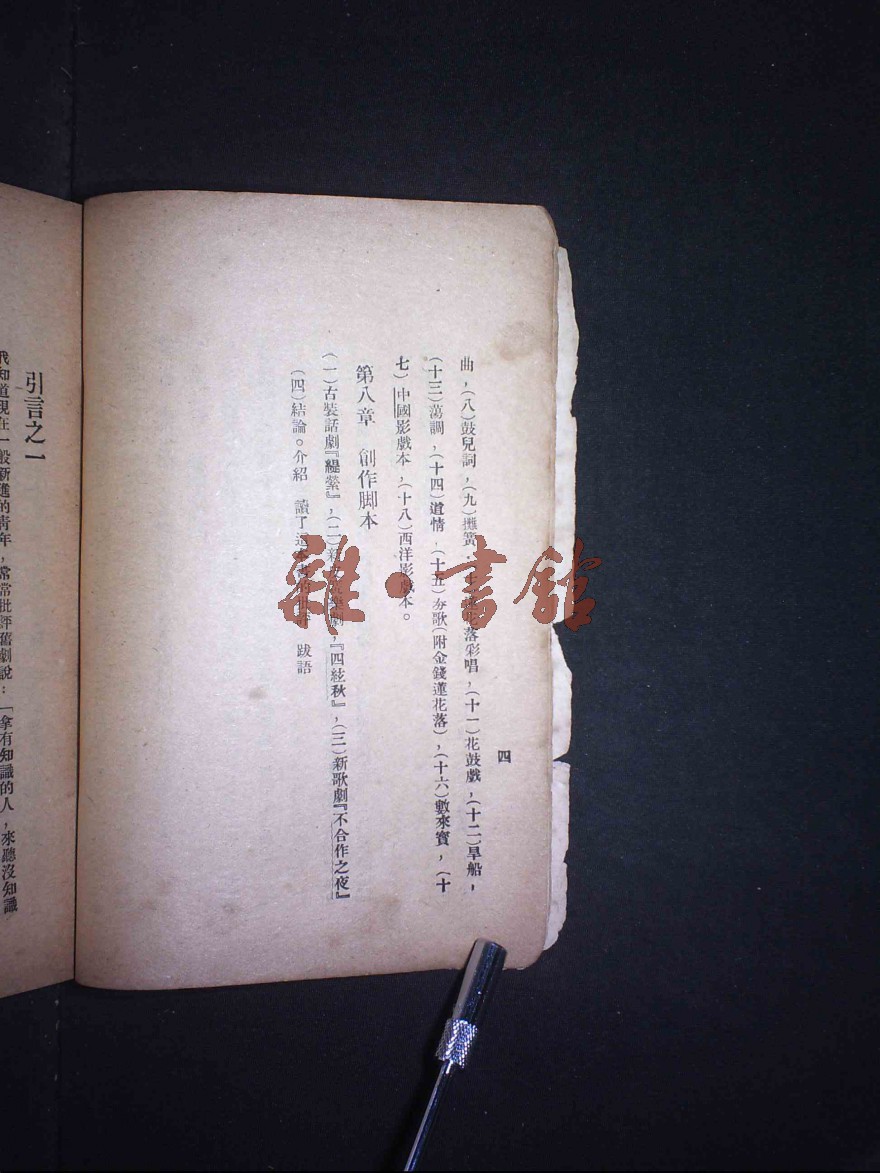 四
曲，(八)鼓兒詞，(九)攤簧，(十)蓮花落彩唱，(十一)花鼓戲，(十二)旱船，
(十三)蕩調，(十四)道情，(十五)夯歌(附金錢蓮花落)，(十六)數來寶，(十
七)中國影戲本，(十八)西洋影戲本。
第八章　創作脚本
(一)古裝話劇『緹縈』，(二)新 樂劇，『四絃秋』，(三)新歌劇『不合作之夜』
(四)結論。介紹　讀了這本書的批評　跋語
引言之一
我知道現在一般新進的青年，常常批評舊劇說：「拿有知識的人，來聽沒知識
雜·書館